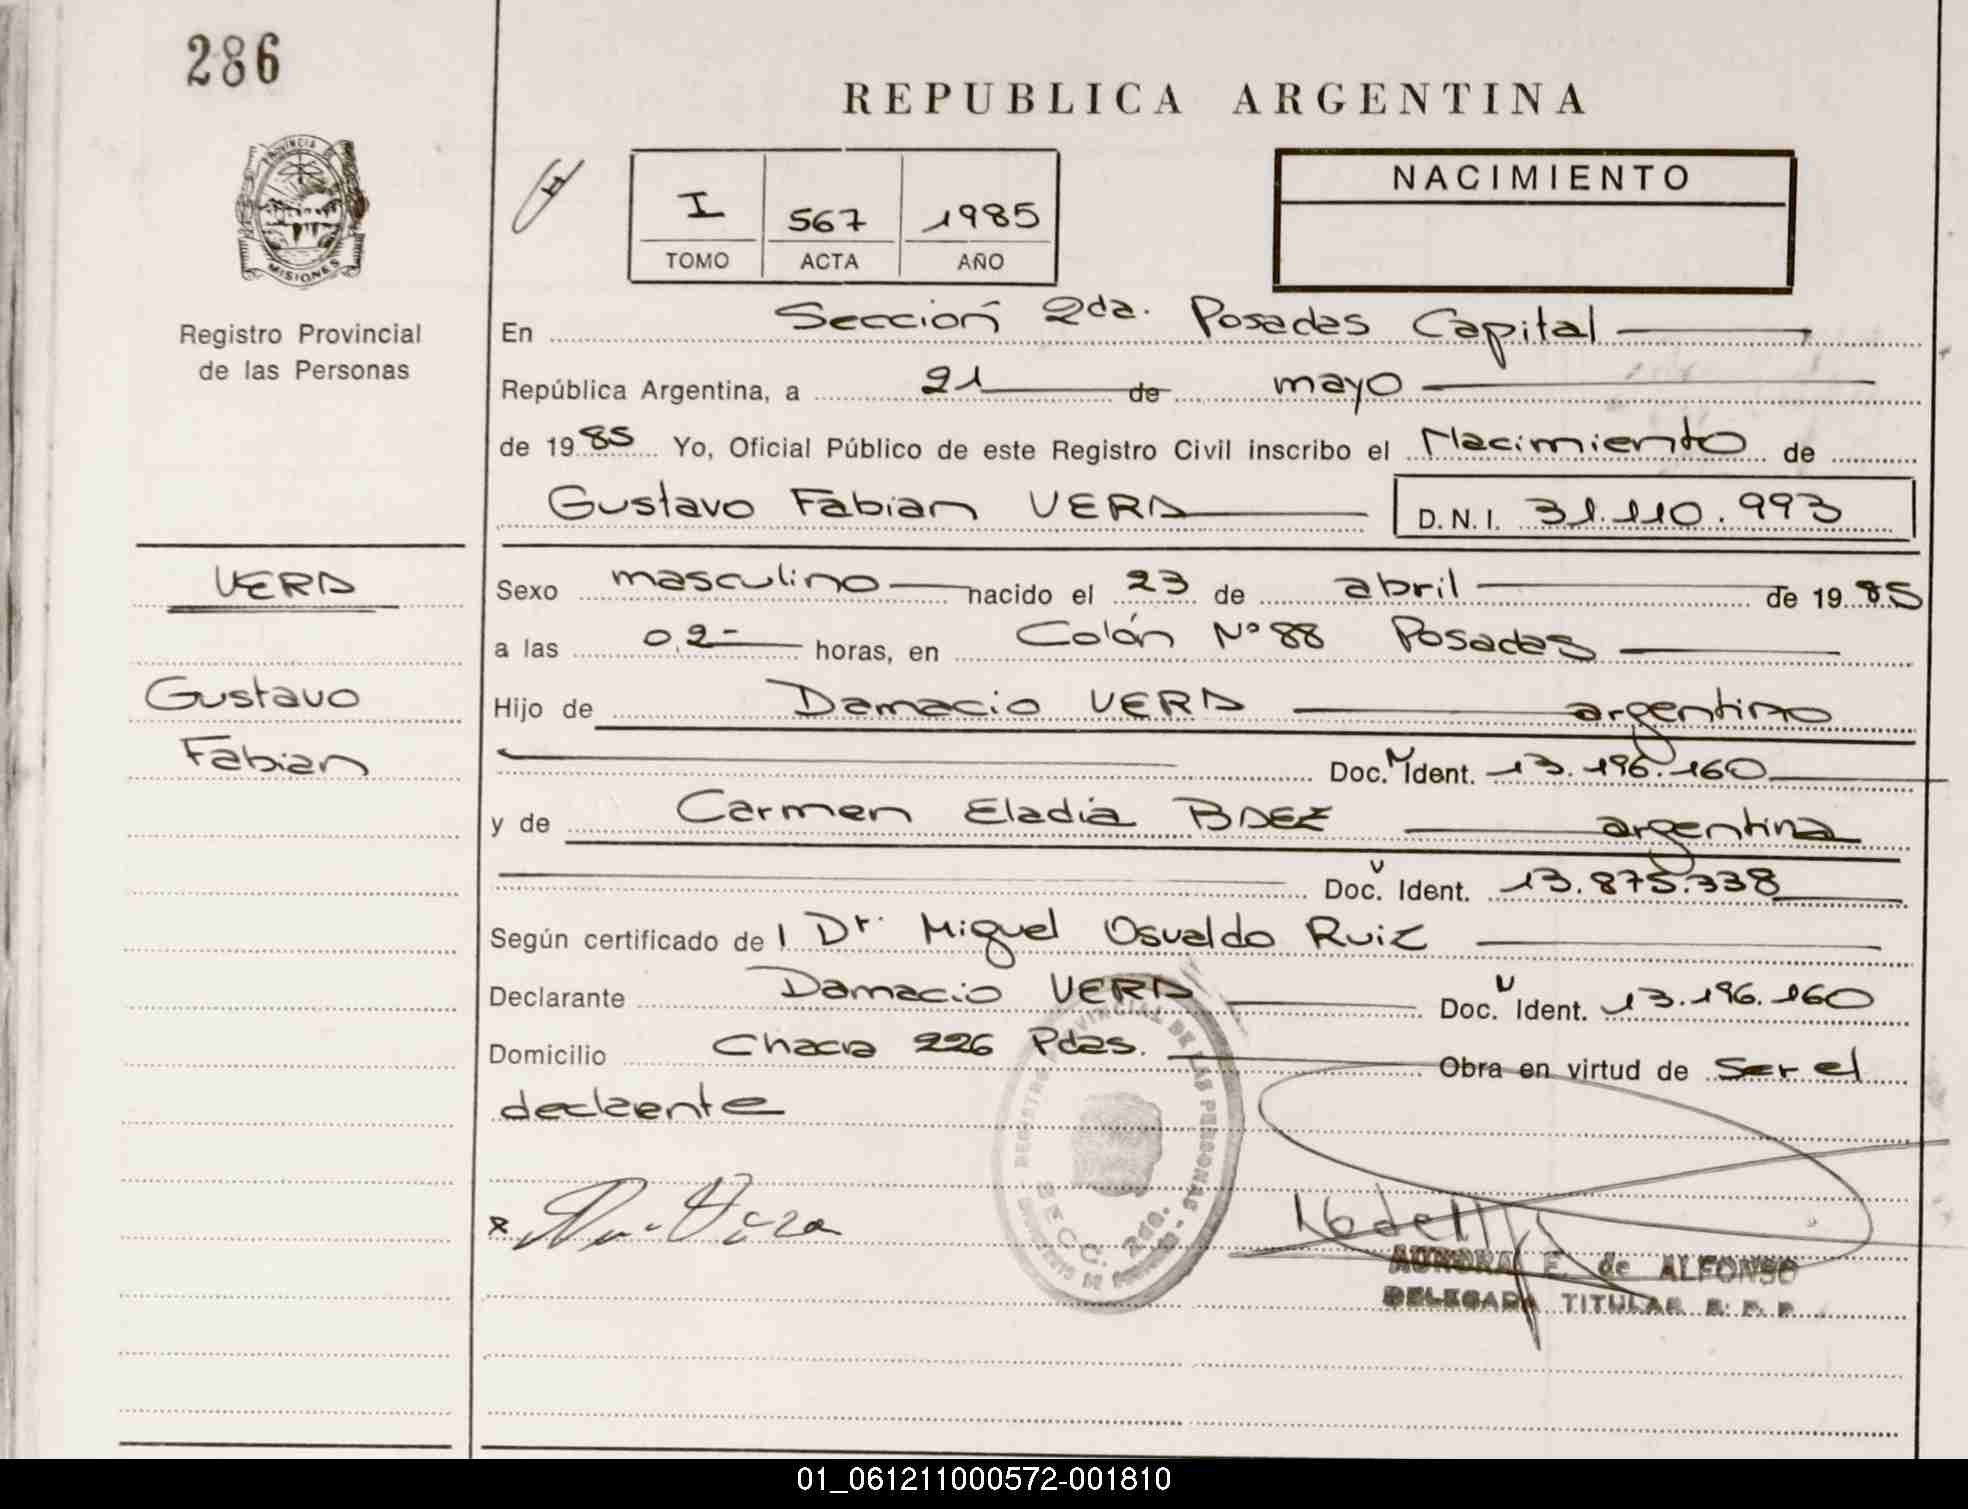 286
REPUBLICA ARGENTINA
PROVINCIA DE
MISIONES
Registro Provincial
de las Personas
I 567 1985
TOMO ACTA AÑO
NACIMIENTO
En Sección 2da. Posadas Capital
República Argentina, a 21 de mayo
de 1985 Yo, Oficial Público de este Registro Civil inscribo el Nacimiento de
Gustavo Fabian VERA D.N.I. 31.110.993
VERA
Gustavo
Fabian
Sexo masculino nacido el 23 de abril de 1985
a las 02- horas, en Colón Nº 88 Posadas
Hijo de Damacio VERA argentino
Doc. Ident. 13.196.160
y de Carmen Eladia BAEZ argentina
Doc. Ident. 13.875.338
Según certificado del Dr. Miguel Osvaldo Ruiz
Declarante Damacio VERA Doc. Ident. 13.196.160
Domicilio Chacra 226 Pdas. Obra en virtud de ser el
declarente
REGISTRO PROVINCIAL DE LAS PERSONAS
SECC. 2da.
AURORA E. de ALFONSO
DELEGADA TITULAR R. P. P.
01_061211000572-001810